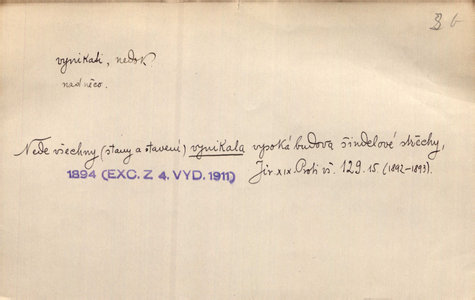 8 b
vynikati, nedok.
nad něco.
Nade všechny (stany a stavení) vynikala vysoká budova šindelové střechy,
Jir. XIX. Proti vš. 129. 15. (1892–1893).
1894 (EXC. Z 4. VYD. 1911)